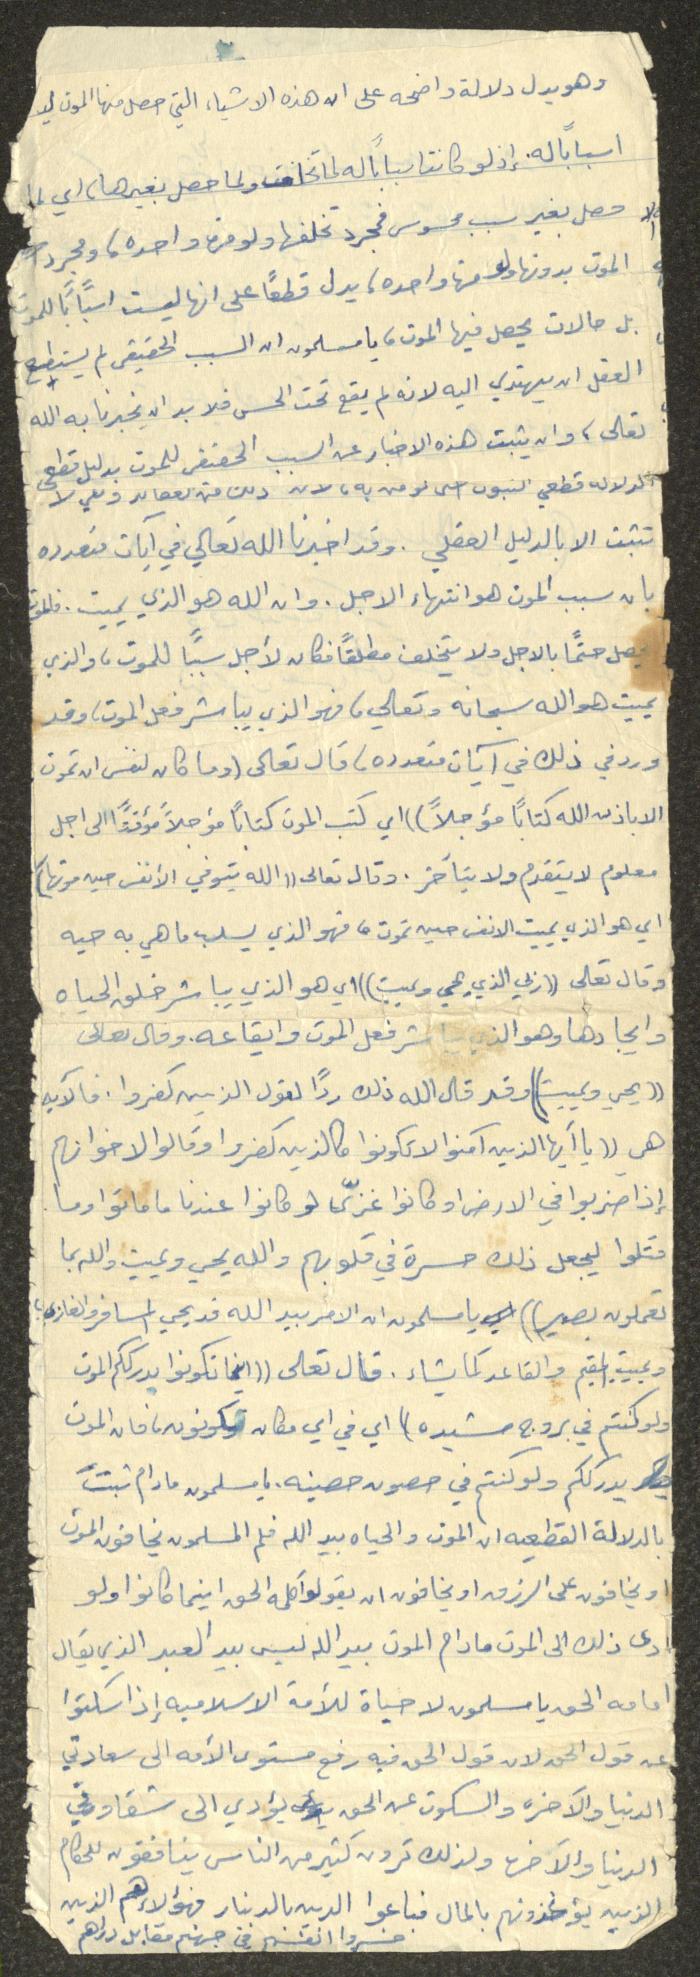 وهو يدل دلالة واضحه على ان هذه الاشياء التي حصل منها الموت ليـ
اسباباً له. إذ لو كانت اسباباً له لما تخلفت ولما حصل بغيرها، اي لما
حصل بغير سبب محسوس فمجرد تخلفها ولو مرة واحده، ومجرد
الموت بدونها ولو مرة واحده، يدل قطعًا على انها ليست اسباباً للموت
بل حالات يحصل فيها الموت، يا مسلمون ان السبب الحقيقي لم يستطع
العقل ان يهتدي اليه لانه لم يقع تحت الحس فلا بد ان يخبرنا به الله
تعالى، وان يثبت هذه الاخبار عن السبب الحقيقي للموت بدليل قطعي
الدلاله قطعي الثبوت حتى نؤمن به، لان ذلك من العقائد وهي لا
تثبت الا بالدليل العقلي. وقد اخبرنا الله تعالي في آيات متعدده
بان سبب الموت هو انتهاء الاجل. وان الله هو الذي يميت. فالموت
يحصل حتمًا بالاجل ولا يتخلف مطلقًا فكان لأجل سببًا للموت، والذي
يميت هو الله سبحانه وتعالي، فهو الذي يباشر فعل الموت، وقد
ورد في ذلك في آيات متعدده، قال تعالى (وما كان لنفس ان تموت
الا باذن الله كتابًا مؤجلاً)) اي كتب الموت كتابًا مؤجلاً مؤقتًا الى اجل
معلوم لا يتقدم ولا يتأخر. وقال تعالى ((الله يتوفي الأنفس حين موتها))
اي هو الذي يميت الانفس حين تموت، فهو الذي يسلب ما هي به حيه
وقال تعالى ((ربي الذي يحي ويميت)) اي هو الذي يباشر خلق الحياه
وايجادها وهو الذي يباشر فعل الموت وايقاعه. وقال تعالى
((يحي ويميت)) وقد قال الله ذلك ردًا لقول الذين كفروا. فالآيه
هي ((يا أيها الذين آمنوا لا تكونوا كالذين كفروا وقالوا لاخوانهم
إذا ضربوا في الارض او كانوا غزّى لو كانوا عندنا ما ماتوا وما
قتلوا ليجعل ذلك حسرة في قلوبهم والله يحي ويميت والله بما
تعملون بصير)) يا مسلمون ان الامر بيد الله قد يحي المسافر والغازي،
ويميت المقيم والقاعد كما يشاء. قال تعالى ((اينما تكونوا يدرككم الموت
ولو كنتم في بروج مشيده)) اي في اي مكان تكونون، فان الموت
يدرككم ولو كنتم في حصون حصينه. يا مسلمون مادام ثبتت
بالدلالة القطعيه ان الموت والحياه بيد الله فلم المسلمون يخافون الموت
او يخافون على الرزق او يخافون ان يقولوا كلمه الحق اينما كانوا ولو
ادى ذلك الى الموت مادام الموت بيد الله ليس بيد العبد الذي يقال
امامه الحق يا مسلمون لا حياة للأمة الاسلاميه إذا سكتوا
عن قول الحق لان قول الحق فيه رفع مستوى الأمه الى سعادتي
الدنيا والآخره والسكوت عن الحق يؤدي الى شقاوتي
الدنيا والآخره ولذلك ترون كثير من الناس ينافقون للحكام
الذين يؤخذونهم بالمال فباعوا الدين بالدينار فهؤلاء هم الذين
خسروا انفسهم في جهنم مقابل دراهم